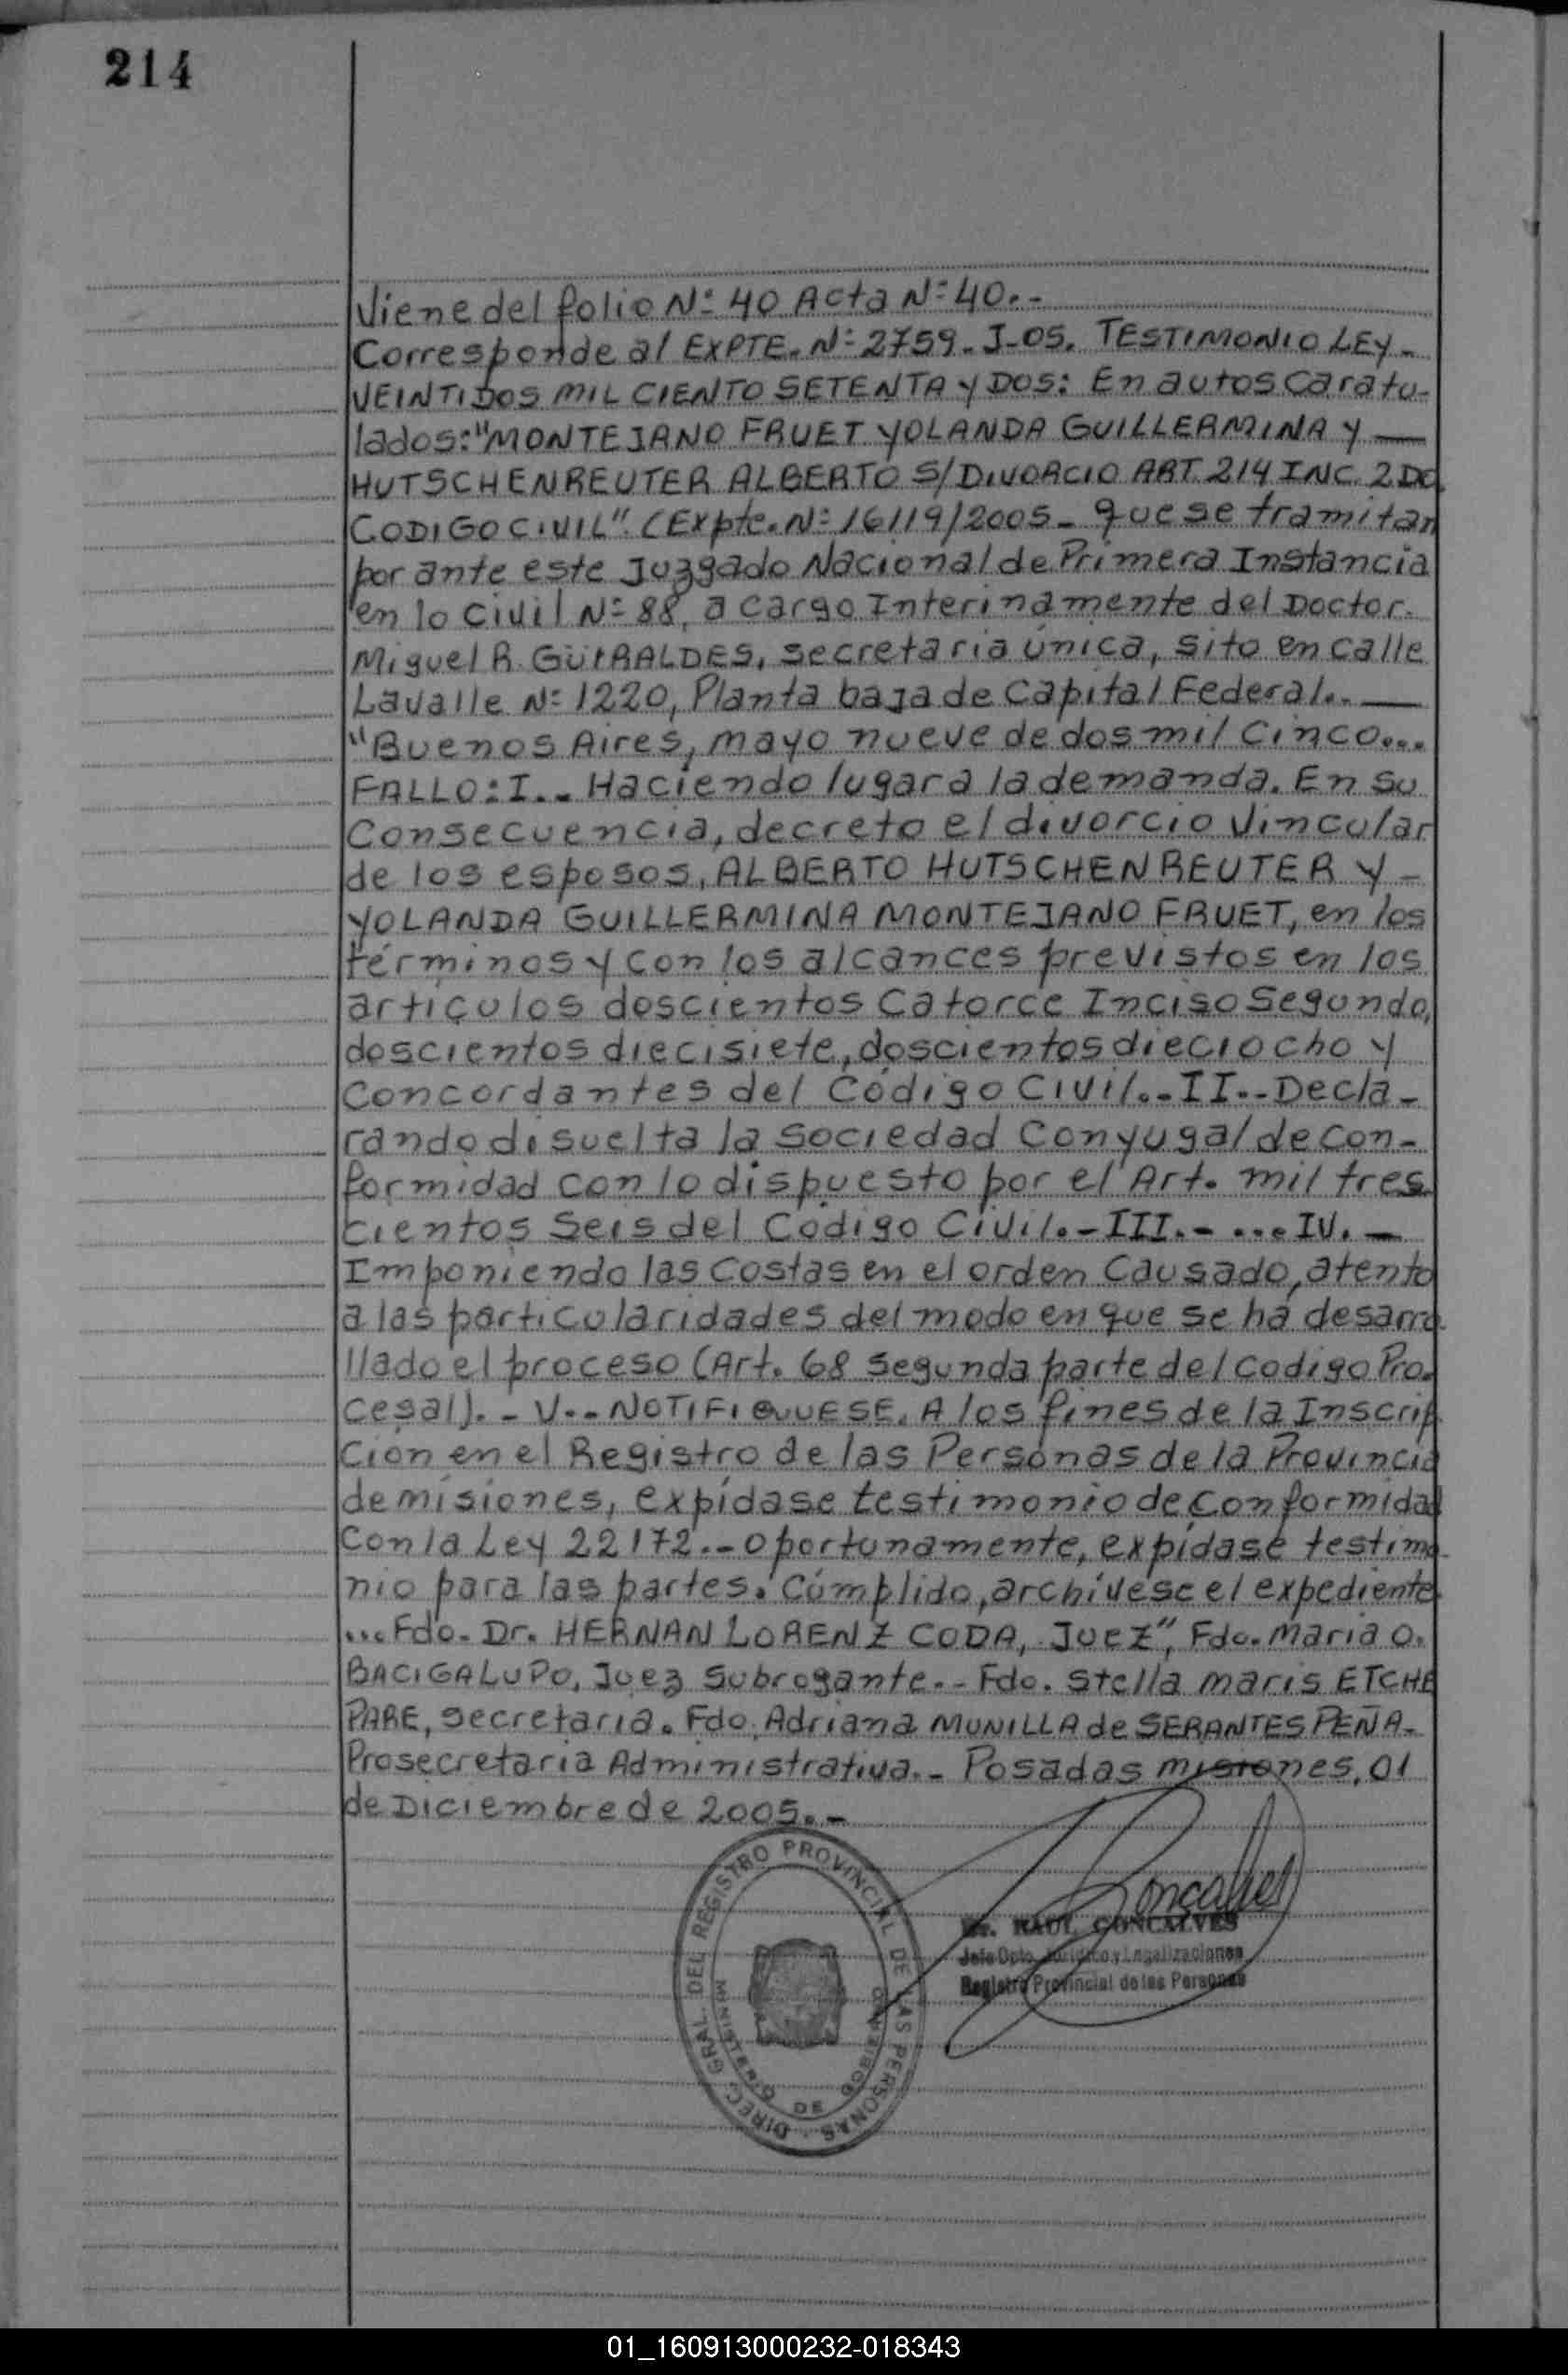 214
Viene del folio Nº 40 Acta Nº 40.-
Corresponde al EXPTE. Nº 2759-J-05. TESTIMONIO LEY-
VEINTIDOS MIL CIENTO SETENTA Y DOS: En autos caratu-
lados: "MONTEJANO FRUET YOLANDA GUILLERMINA Y
HUTSCHENREUTER ALBERTO S/ DIVORCIO ART. 214 INC. 2DO
CODIGO CIVIL". (Expte. Nº 16119/2005- que se tramitan
por ante este Juzgado Nacional de Primera Instancia
en lo Civil Nº 88, a cargo Interinamente del Doctor.
Miguel R. GÜIRALDES, secretaria única, sito en calle
Lavalle Nº 1220, Planta baja de Capital Federal..
"Buenos Aires, mayo nueve de dos mil cinco...
FALLO: I.- Haciendo lugar a la demanda. En su
Consecuencia, decreto el divorcio Vincular
de los esposos, ALBERTO HUTSCHENREUTER Y-
YOLANDA GUILLERMINA MONTEJANO FRUET, en los
términos y con los alcances previstos en los
artículos doscientos Catorce Inciso Segundo,
doscientos diecisiete, doscientos dieciocho y
Concordantes del Código Civil.-II.-Decla-
rando disuelta la sociedad Conyugal de con-
formidad con lo dispuesto por el Art. mil tres
cientos Seis del Código Civil.-III.-...IV.-
Imponiendo las Costas en el orden Causado, atento
a las particularidades del modo en que se ha desarro-
llado el proceso (Art. 68 segunda parte del codigo Pro-
cesal).-V.-NOTIFIQUUESE. A los fines de la Inscrip-
ción en el Registro de las Personas de la Provincia
de misiones, expídase testimonio de conformidad
Con la Ley 22172.-Oportunamente, expídase testimo-
nio para las partes. Cúmplido, archívese el expediente
...Fdo. Dr. HERNAN LORENZ CODA, Juez", Fdo. Maria O.
BACIGALUPO, Juez Subrogante.-Fdo. Stella maris ETCHE
PARE, secretaria. Fdo. Adriana MUNILLA de SERANTES PEÑA-
Prosecretaria Administrativa.- Posadas misiones, 01
de Diciembre de 2005.-
DIREC. GRAL. DEL REGISTRO PROVINCIAL DE LAS PERSONAS
MINISTERIO DE GOBIERNO
Goncalves
Dr. RAUL GONCALVES
Jefe Dpto. Jurídico y Legalizaciones
Registro Provincial de las Personas
01_160913000232-018343